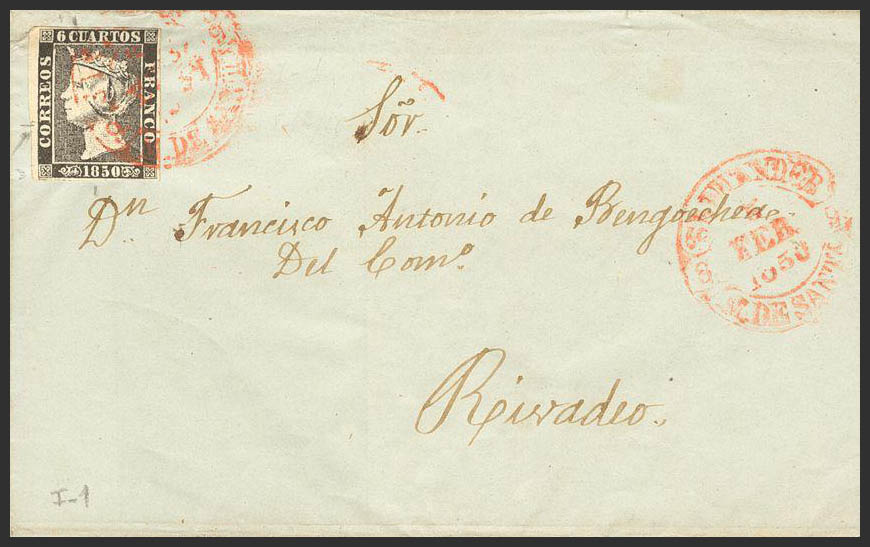 6 CUARTOS
CORREOS
FRANCO
1850
Sōr.
Dn Francisco Antonio de Bengoechea
Del Como.
Rivadeo.
SANTANDER
1850
DE SANTA
I-1